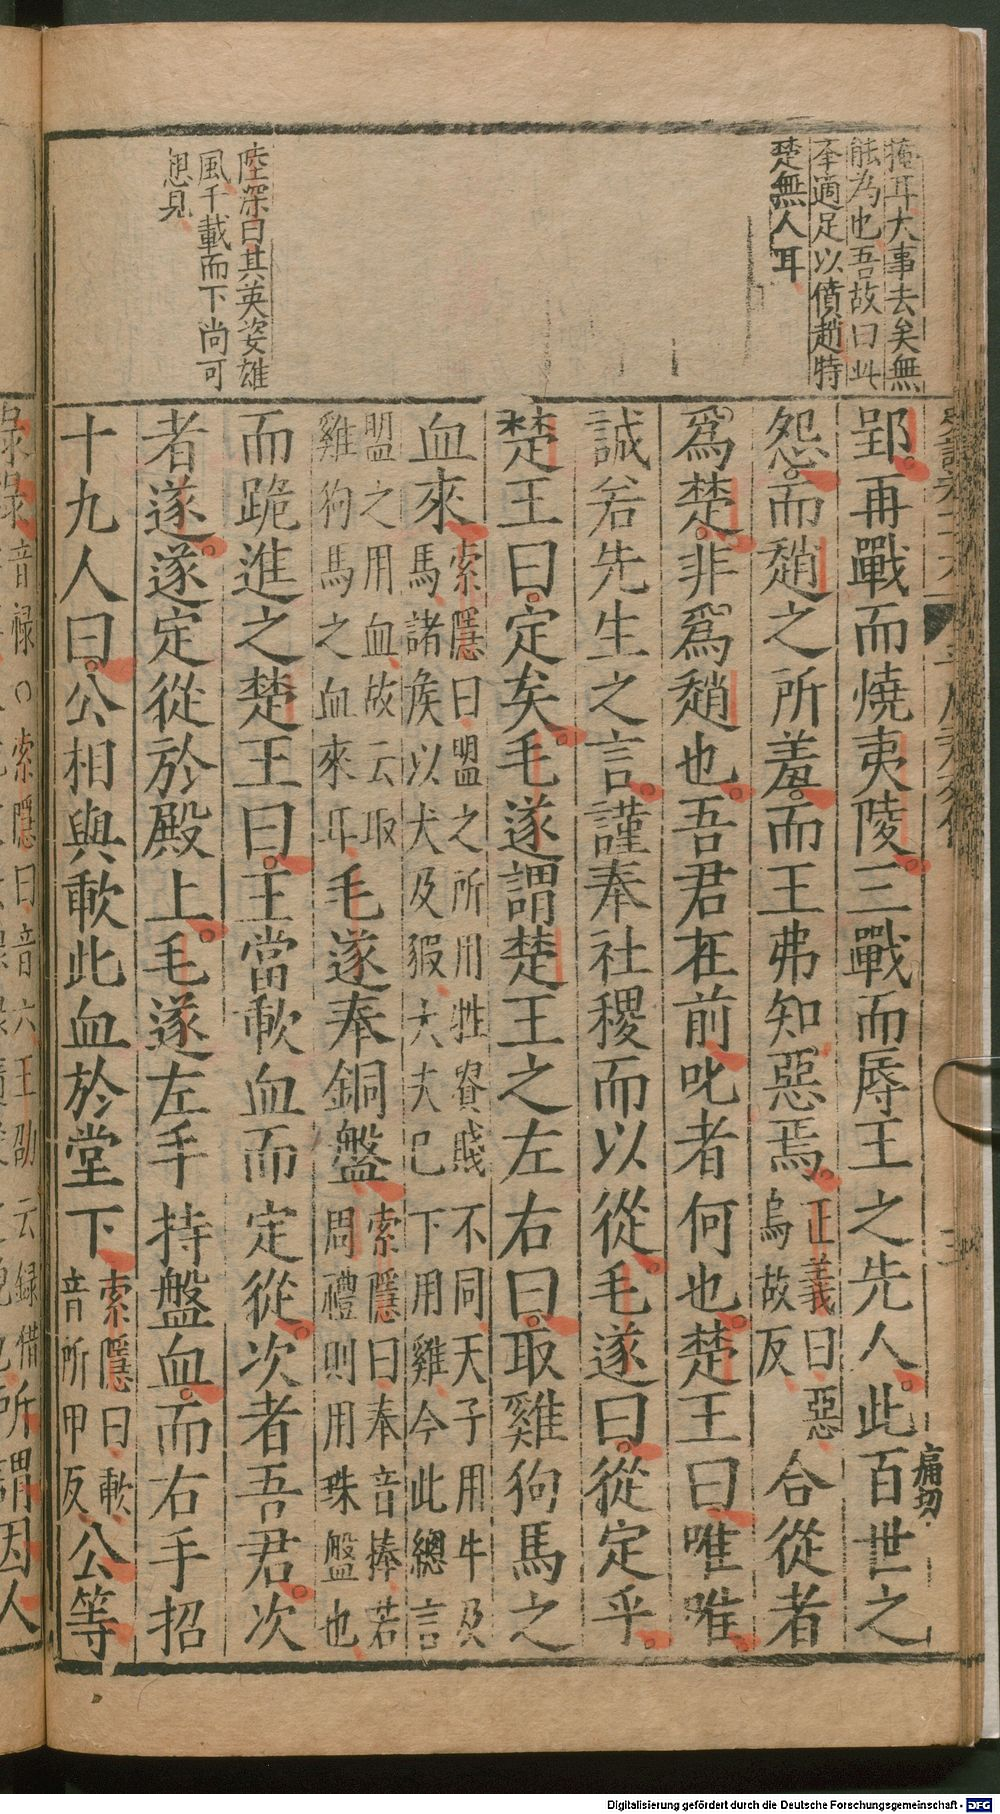 掩耳大事去矣無
能為也吾故曰此
本適足以僨趙特
楚無人耳
陸深曰其英姿雄
風千載而下尚可
想見
郢再戰而燒夷陵三戰而辱王之先人此百世之
痛切
怨而趙之所羞而王弗知惡焉
正義曰惡
烏故反
合從者
爲楚非爲趙也吾君在前叱者何也楚王曰唯唯
誠若先生之言謹奉社稷而以從毛遂曰從定乎
楚王曰定矣毛遂謂楚王之左右曰取雞狗馬之
血來
索隱曰盟之所用牲貴賤不同天子用牛及
馬諸侯以犬及猳大夫已下用雞今此總言
盟之用血故云取
雞狗馬之血來耳
毛遂奉銅盤
索隱曰奉音捧若
周禮則用珠盤也
而跪進之楚王曰王當歃血而定從次者吾君次
者遂遂定從於殿上毛遂左手持盤血而右手招
十九人曰公相與歃此血於堂下
索隱曰歃
音所甲反
公等
音禄○索隱曰音六王劭云録借
所謂因人
Digitalisierung gefördert durch die Deutsche Forschungsgemeinschaft - DFG